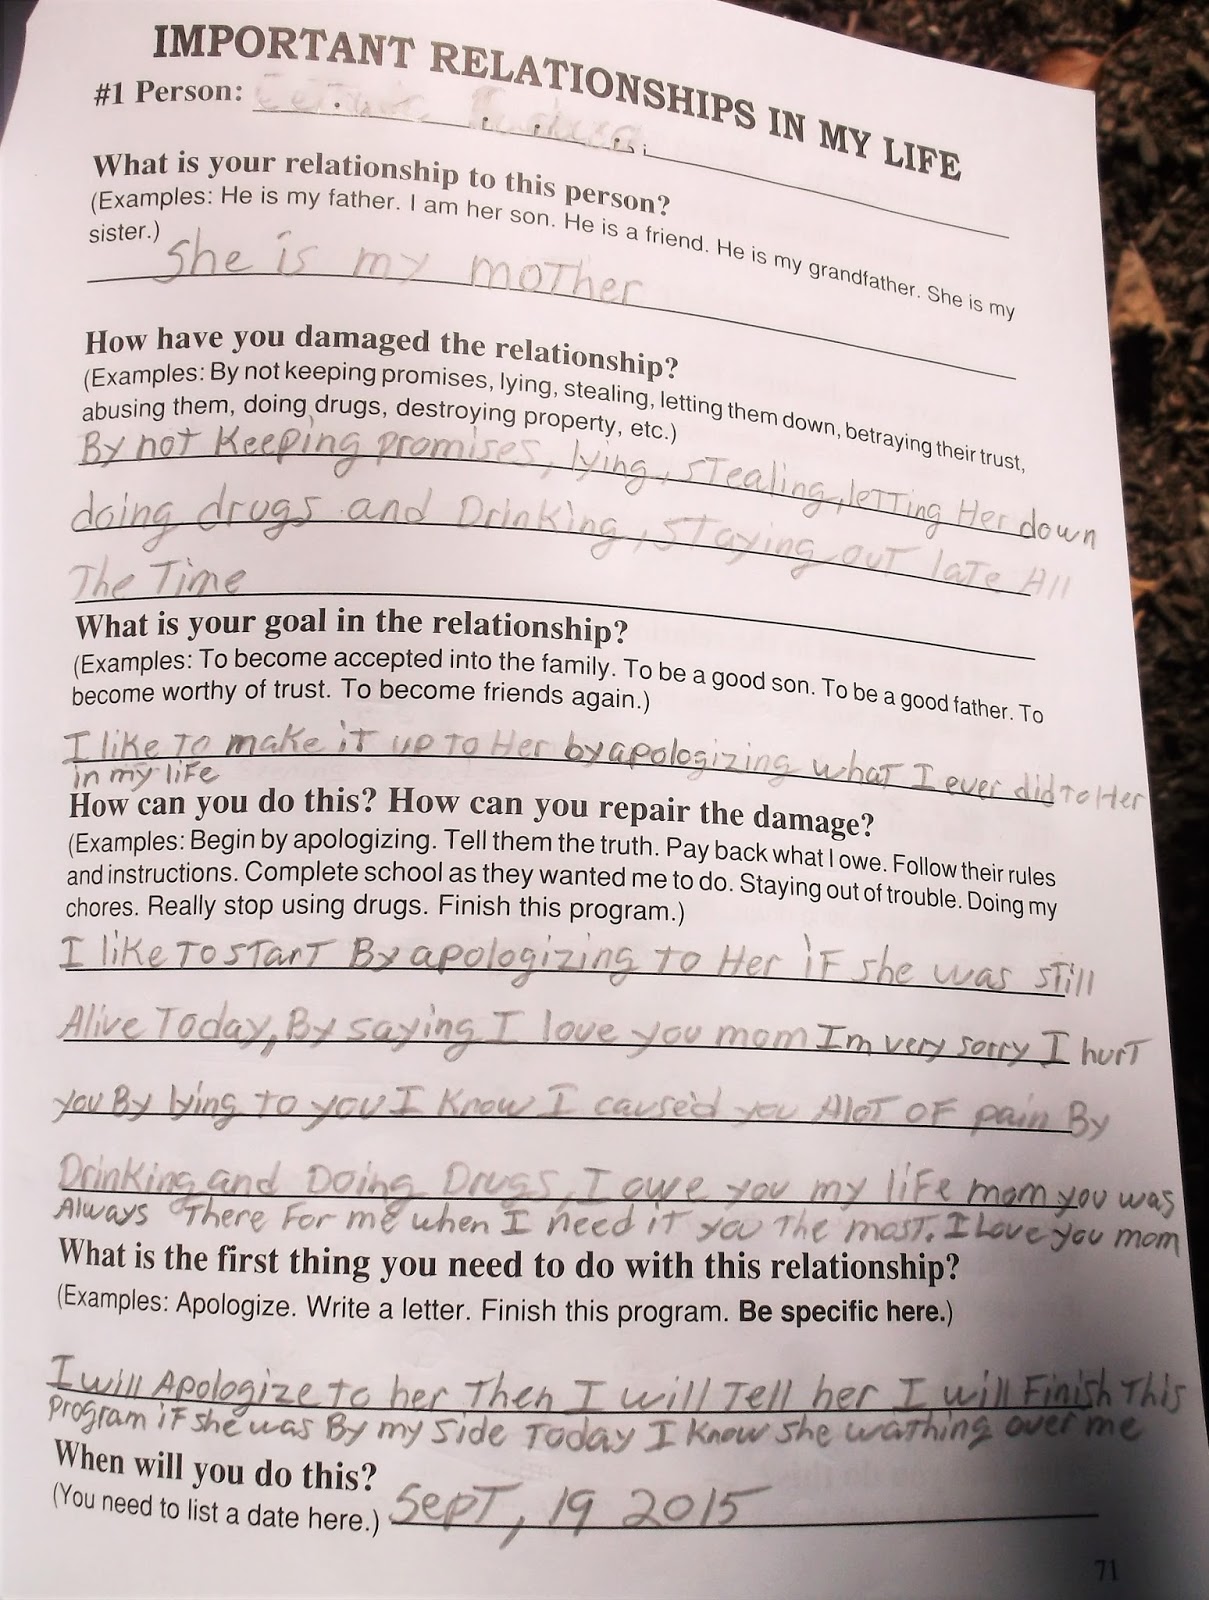 IMPORTANT RELATIONSHIPS IN MY LIFE
#1 Person:
What is your relationship to this person?
(Examples: He is my father. I am her son. He is a friend. He is my grandfather. She is my
sister.)
She is my mother
How have you damaged the relationship?
(Examples: By not keeping promises, lying, stealing, letting them down, betraying their trust,
abusing them, doing drugs, destroying property, etc.)
By not Keeping promises, lying, stealing, letting Her down
doing drugs and Drinking, staying out late All
The Time
What is your goal in the relationship?
(Examples: To become accepted into the family. To be a good son. To be a good father. To
become worthy of trust. To become friends again.)
I like To make it up to Her by apologizing what I ever did to Her
in my life
How can you do this? How can you repair the damage?
(Examples: Begin by apologizing. Tell them the truth. Pay back what I owe. Follow their rules
and instructions. Complete school as they wanted me to do. Staying out of trouble. Doing my
chores. Really stop using drugs. Finish this program.)
I like To start By apologizing to Her if she was still
Alive Today, By saying I love you mom Im very sorry I hurt
you By lying to you I Know I caused you Alot OF pain By
Drinking and Doing Drugs, I owe you my life mom you was
Always There For me when I need it you The most. I Love you mom
What is the first thing you need to do with this relationship?
(Examples: Apologize. Write a letter. Finish this program. Be specific here.)
I will Apologize to her Then I will Tell her I will Finish This
program if she was By my side Today I Know she wathing over me
When will you do this?
(You need to list a date here.) Sept, 19 2015
71